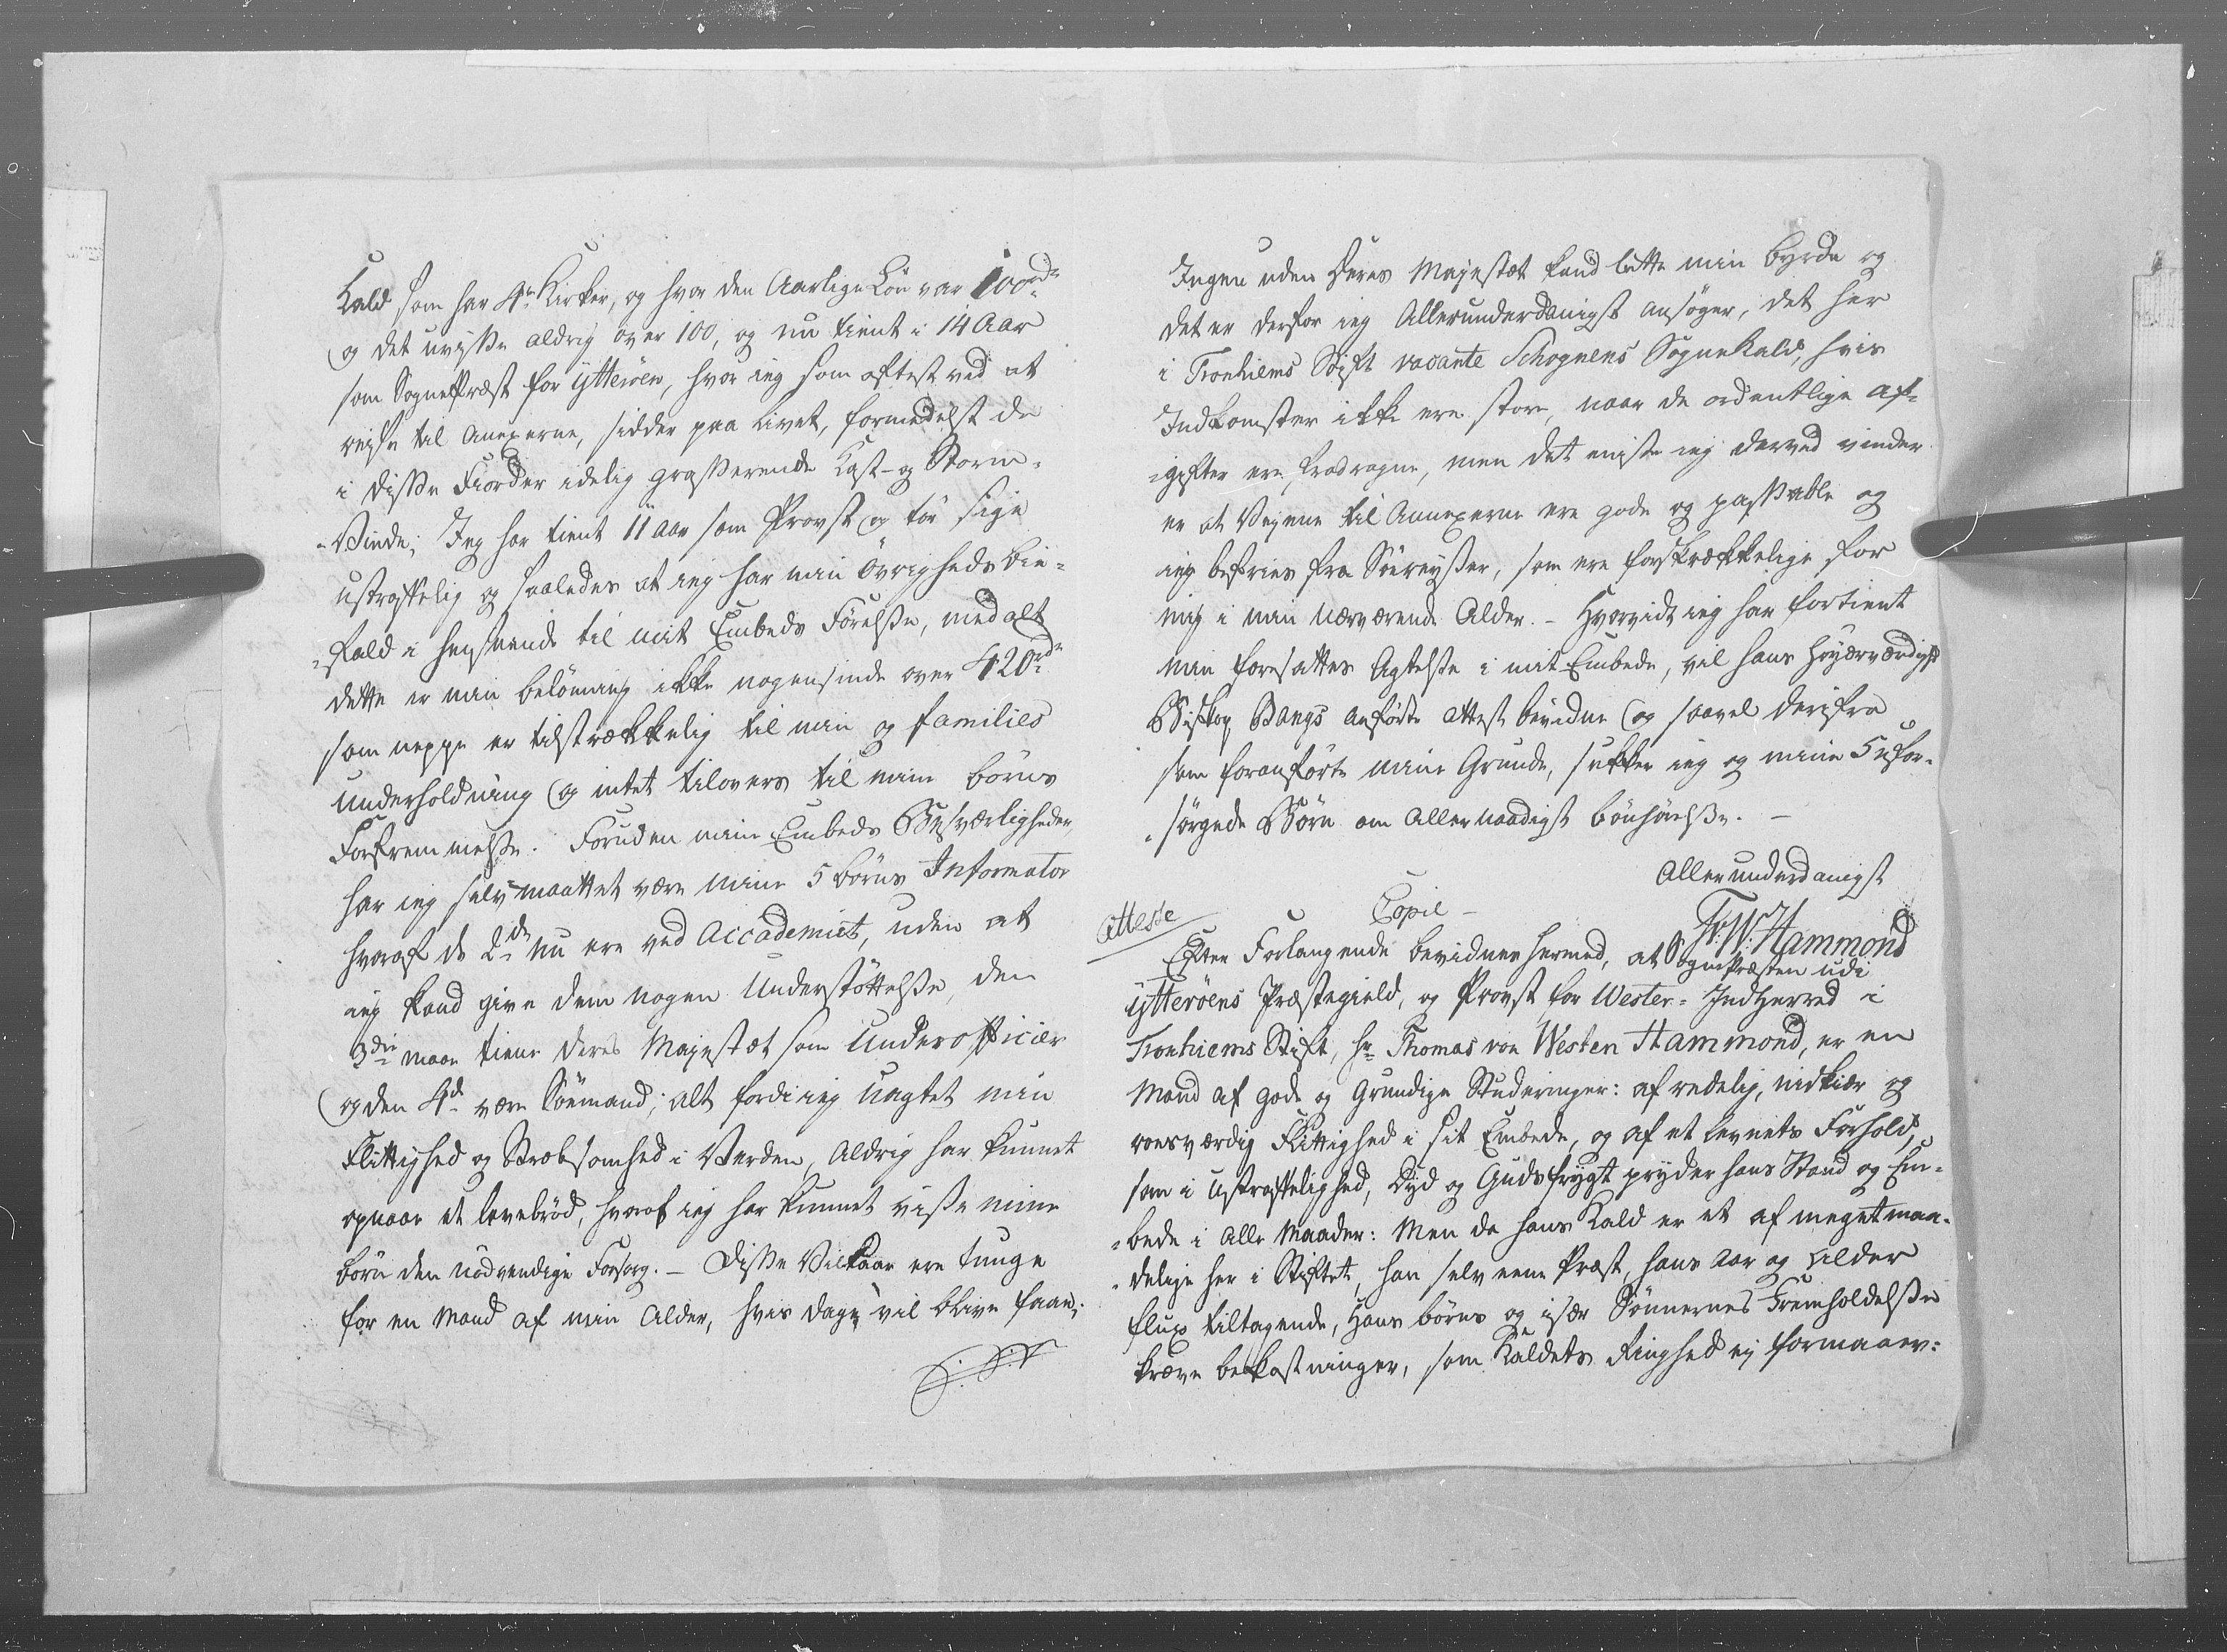 Kald som har 4re Kirker, og hvor den Aarlige Løn var 100rdr
og det uvisse aldrig over 100, og nu tient i 14 Aar
som SognePræst for Ytterøen, hvor ieg som oftest ved at
reyse til Anexerne, sidder paa Livet, formedelst de
i disse Fiorder idelig grasserende Kast- og Storm-
-Vinde; Jeg har tient 11 Aar som Provst og tør sige
ustraffelig og saaledes at ieg har min Øvrigheds Bie-
-fald i henseende til mit Embeds Førelse, med alt
dette er min belønning ikke nogensinde over 420rdr
som neppe er tilstrækkelig til min og families
Underholdning og intet tilovers til mine børns
Forfremmelse. Foruden mine Embeds Besværligheder,
har ieg selv maattet være mine 5 børns Informator
hvoraf de 2de nu ere ved Accademiet, uden at
ieg kand give dem nogen Understøttelse, den
3die maae tiene deres Majestæt som Underofficier
og den 4de være Søemand; alt fordi ieg uagtet min
Flittighed og Stræbsomhed i Verden, Aldrig har kunnet
opnaae et levebrød, hvoraf ieg har kunnet vise mine
børn den nødvendige Forsorg. - Disse Vilkaar ere tunge
for en Mand af min Alder, hvis dage vil blive faae;
Ingen uden Deres Majestæt kand lette min byrde og
det er derfor ieg Allerunderdanigst ansøger, det her
i Tronhiems Stift vacante Schognens Sognekald, hvis
Indkomster ikke ere store, naar de ordentlige Af-
-gifter ere fradragne, men det eniste ieg derved vinder
er at Vejene til Annexerne ere gode og passable og
ieg befries fra Søereyser, som ere forskrækkelige for
mig i min nærværende Alder. - Hvorvidt ieg har fortient
min foresattes Agtelse i mit Embede, vil hans Høyærværdighed
Biskop Bangs anførte Attest bevidne og saavel derifra
som foranførte mine Grunde, sukker ieg og mine 5 ufor-
-sørgede Børn om Allernaadigst bønhørelse. -
Allerunderdanigst
T: W: Hammond
Copie -
Atteste
Efter Forlangende bevidnes hermed, at SognePræsten udi
Ytterøens Præstegield, og Provst for Wester-Indherred i
Tronhiems Stift, Hr Thomas von Westen Hammond, er en
Mand af gode og Grundige Studeringer: af redelig, nidkiær og
roesværdig Flittighed i sit Embede, og af et levnets Forhold,
som i Ustraffelighed, Dyd og Gudsfrygt pryder hans Stand og Em-
-bede i alle Maader: Men da hans Kald er et af meget maa-
-delige her i Stiftet, han selv eene Præst, hans Aar og Alder
flux tiltagende, Hans børns og især Sønnernes Fremholdelse
kræve bekostninger, som Kaldets Ringhed ej formaaer: